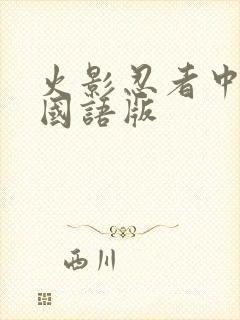 火影忍者中
國語版
西川